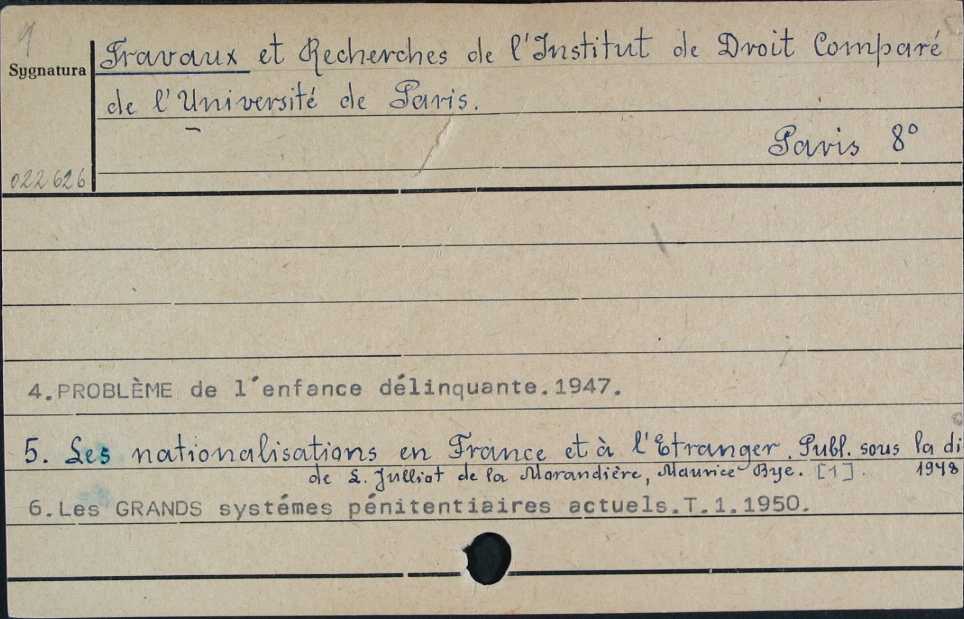 9
Travaux et Recherches de l'Institut de Droit Comparé
Sygnatura
de l'Université de Paris.
Paris 8°
022626
4.PROBLÈME de l'enfance délinquante.1947.
5. Les nationalisations en France et à l'Etranger. Publ. sous la di
de L. Julliot de la Morandière, Maurice Bye. [1]. 1948
6.Les GRANDS systémes pénitentiaires actuels.T.1.1950.